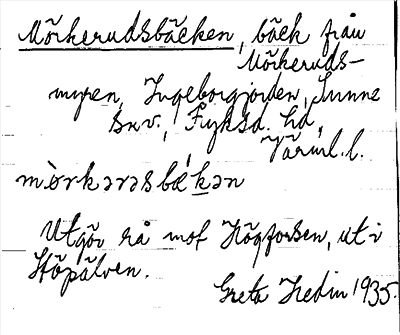 Mörkerudsbäcken, bäck från
Mörkeruds-
myren, Ingeborgjorden, Sunne
snv., Fryksd. hd,
Värml. l.
mòrkərəsbǽkən
Utgör rå mot Högforsen, ut i
Stöpälven.
Greta Hedin 1935.